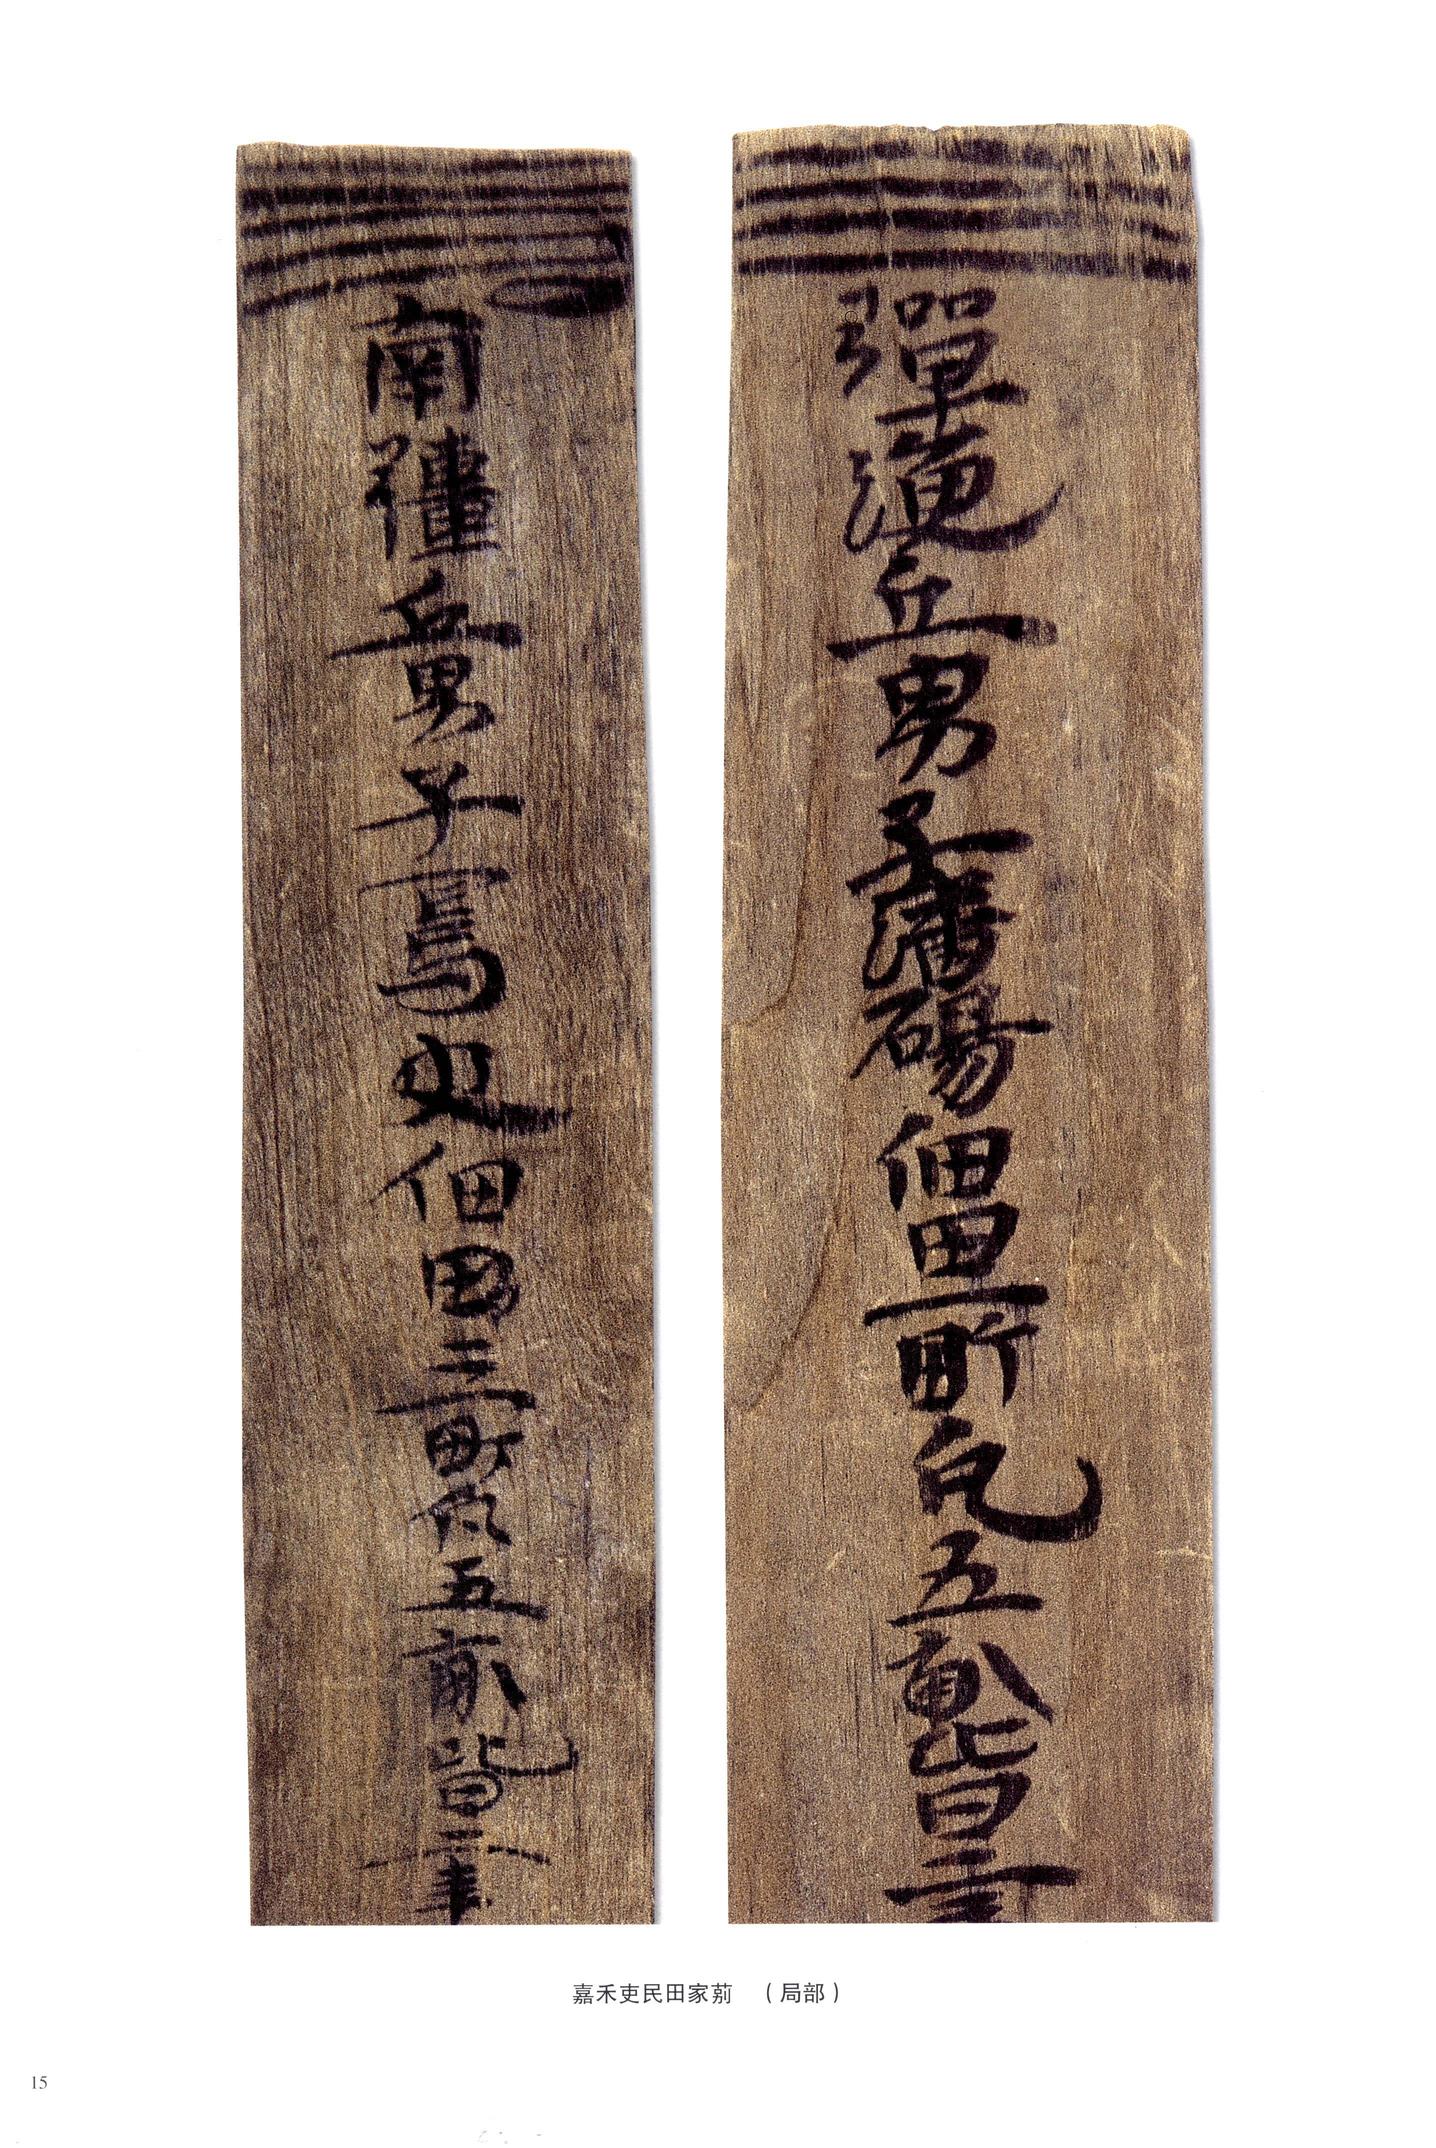 彈溲丘男子潘碭佃田一町凡五畝皆二
南彊丘男子史佃田三町凡五畝皆二年
嘉禾吏民田家莂 （局部）
15